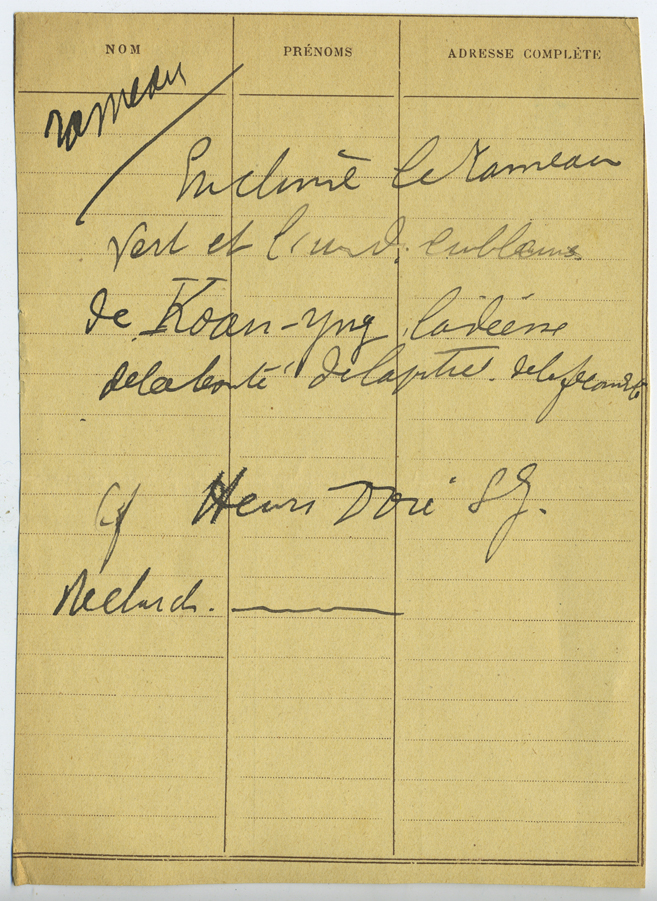 NOM PRÉNOMS ADRESSE COMPLÈTE
rameau
En chine le rameau
vert et l'un d. emblems
de Koan-yng la déesse
de la bonté de la pitié. de la
Cf Henri Doré S.J.
Recherch.